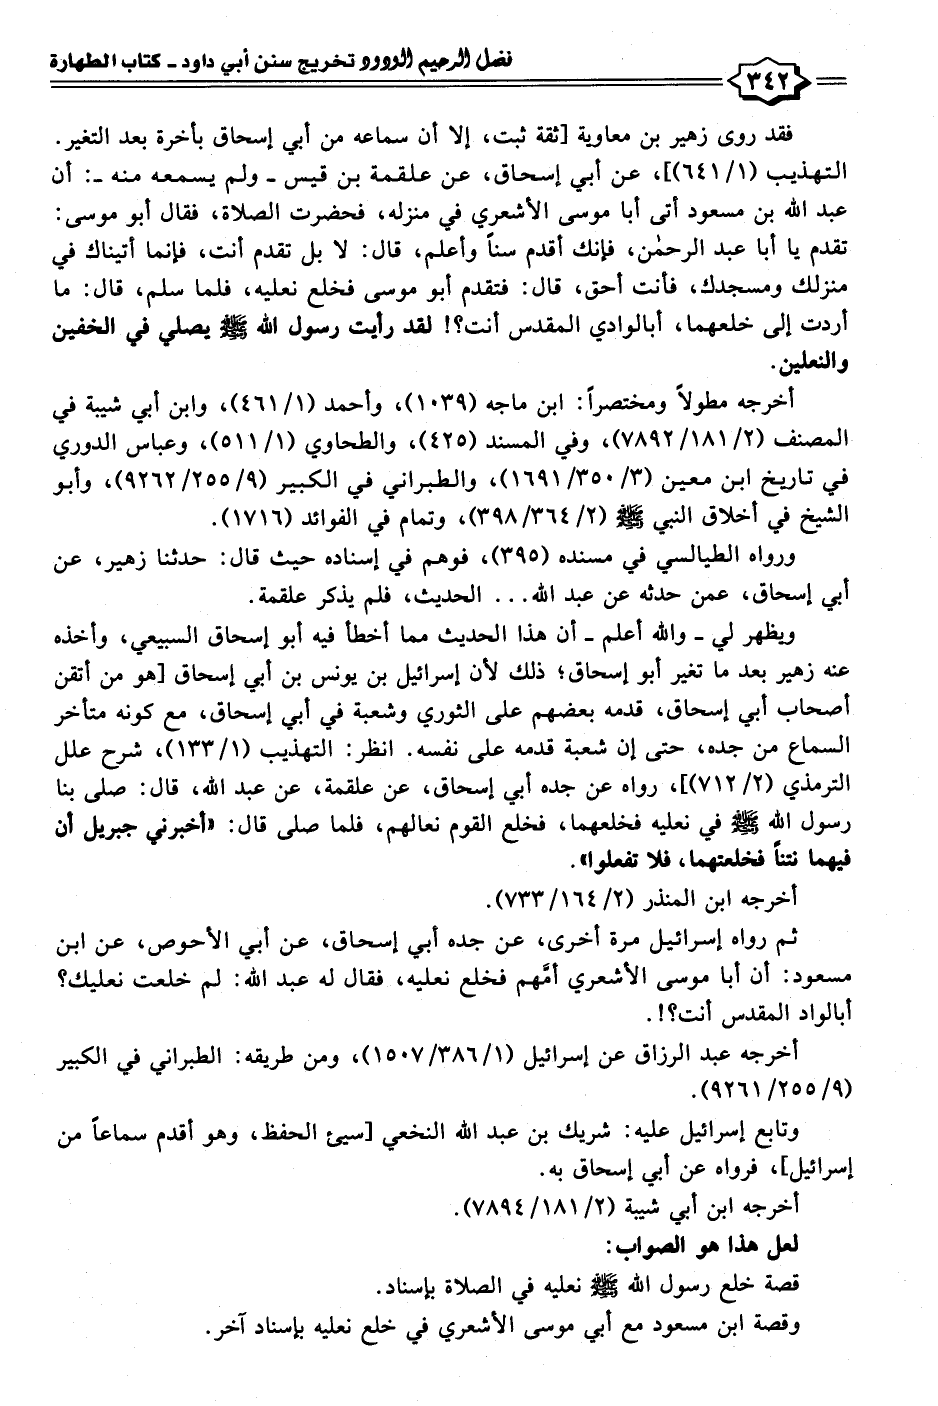 فضل الرحيم الودود تخريج سنن أبي داود ـ كتاب الطهارة
٣٤٢
فقد روى زهير بن معاوية [ثقة ثبت، إلا أن سماعه من أبي إسحاق بأخرة بعد التغير.
التهذيب (١/ ٦٤١)]، عن أبي إسحاق، عن علقمة بن قيس ـ ولم يسمعه منه ـ: أن
عبد الله بن مسعود أتى أبا موسى الأشعري في منزله، فحضرت الصلاة، فقال أبو موسى:
تقدم يا أبا عبد الرحمٰن، فإنك أقدم سناً وأعلم، قال: لا بل تقدم أنت، فإنما أتيناك في
منزلك ومسجدك، فأنت أحق، قال: فتقدم أبو موسى فخلع نعليه، فلما سلم، قال: ما
أردت إلى خلعهما، أبالوادي المقدس أنت؟! لقد رأيت رسول الله ﷺ يصلي في الخفين
والنعلين.
أخرجه مطولاً ومختصراً: ابن ماجه (١٠٣٩)، وأحمد (١/ ٤٦١)، وابن أبي شيبة في
المصنف (٢/ ١٨١/ ٧٨٩٢)، وفي المسند (٤٢٥)، والطحاوي (١/ ٥١١)، وعباس الدوري
في تاريخ ابن معين (٣/ ٣٥٠/ ١٦٩١)، والطبراني في الكبير (٩/ ٢٥٥/ ٩٢٦٢)، وأبو
الشيخ في أخلاق النبي ﷺ (٢/ ٣٦٤/ ٣٩٨)، وتمام في الفوائد (١٧١٦).
ورواه الطيالسي في مسنده (٣٩٥)، فوهم في إسناده حيث قال: حدثنا زهير، عن
أبي إسحاق، عمن حدثه عن عبد الله... الحديث، فلم يذكر علقمة.
ويظهر لي ـ والله أعلم ـ أن هذا الحديث مما أخطأ فيه أبو إسحاق السبيعي، وأخذه
عنه زهير بعد ما تغير أبو إسحاق؛ ذلك لأن إسرائيل بن يونس بن أبي إسحاق [هو من أتقن
أصحاب أبي إسحاق، قدمه بعضهم على الثوري وشعبة في أبي إسحاق، مع كونه متأخر
السماع من جده، حتى إن شعبة قدمه على نفسه. انظر: التهذيب (١/ ١٣٣)، شرح علل
الترمذي (٢/ ٧١٢)]، رواه عن جده أبي إسحاق، عن علقمة، عن عبد الله، قال: صلى بنا
رسول الله ﷺ في نعليه فخلعهما، فخلع القوم نعالهم، فلما صلى قال: «أخبرني جبريل أن
فيهما نتناً فخلعتهما، فلا تفعلوا».
أخرجه ابن المنذر (٢/ ١٦٤/ ٧٣٣).
ثم رواه إسرائيل مرة أخرى، عن جده أبي إسحاق، عن أبي الأحوص، عن ابن
مسعود: أن أبا موسى الأشعري أمَّهم فخلع نعليه، فقال له عبد الله: لم خلعت نعليك؟
أبالواد المقدس أنت؟!.
أخرجه عبد الرزاق عن إسرائيل (١/ ٣٨٦/ ١٥٠٧)، ومن طريقه: الطبراني في الكبير
(٩/ ٢٥٥/ ٩٢٦١).
وتابع إسرائيل عليه: شريك بن عبد الله النخعي [سيئ الحفظ، وهو أقدم سماعاً من
إسرائيل]، فرواه عن أبي إسحاق به.
أخرجه ابن أبي شيبة (٢/ ١٨١/ ٧٨٩٤).
لعل هذا هو الصواب:
قصة خلع رسول الله ﷺ نعليه في الصلاة بإسناد.
وقصة ابن مسعود مع أبي موسى الأشعري في خلع نعليه بإسناد آخر.